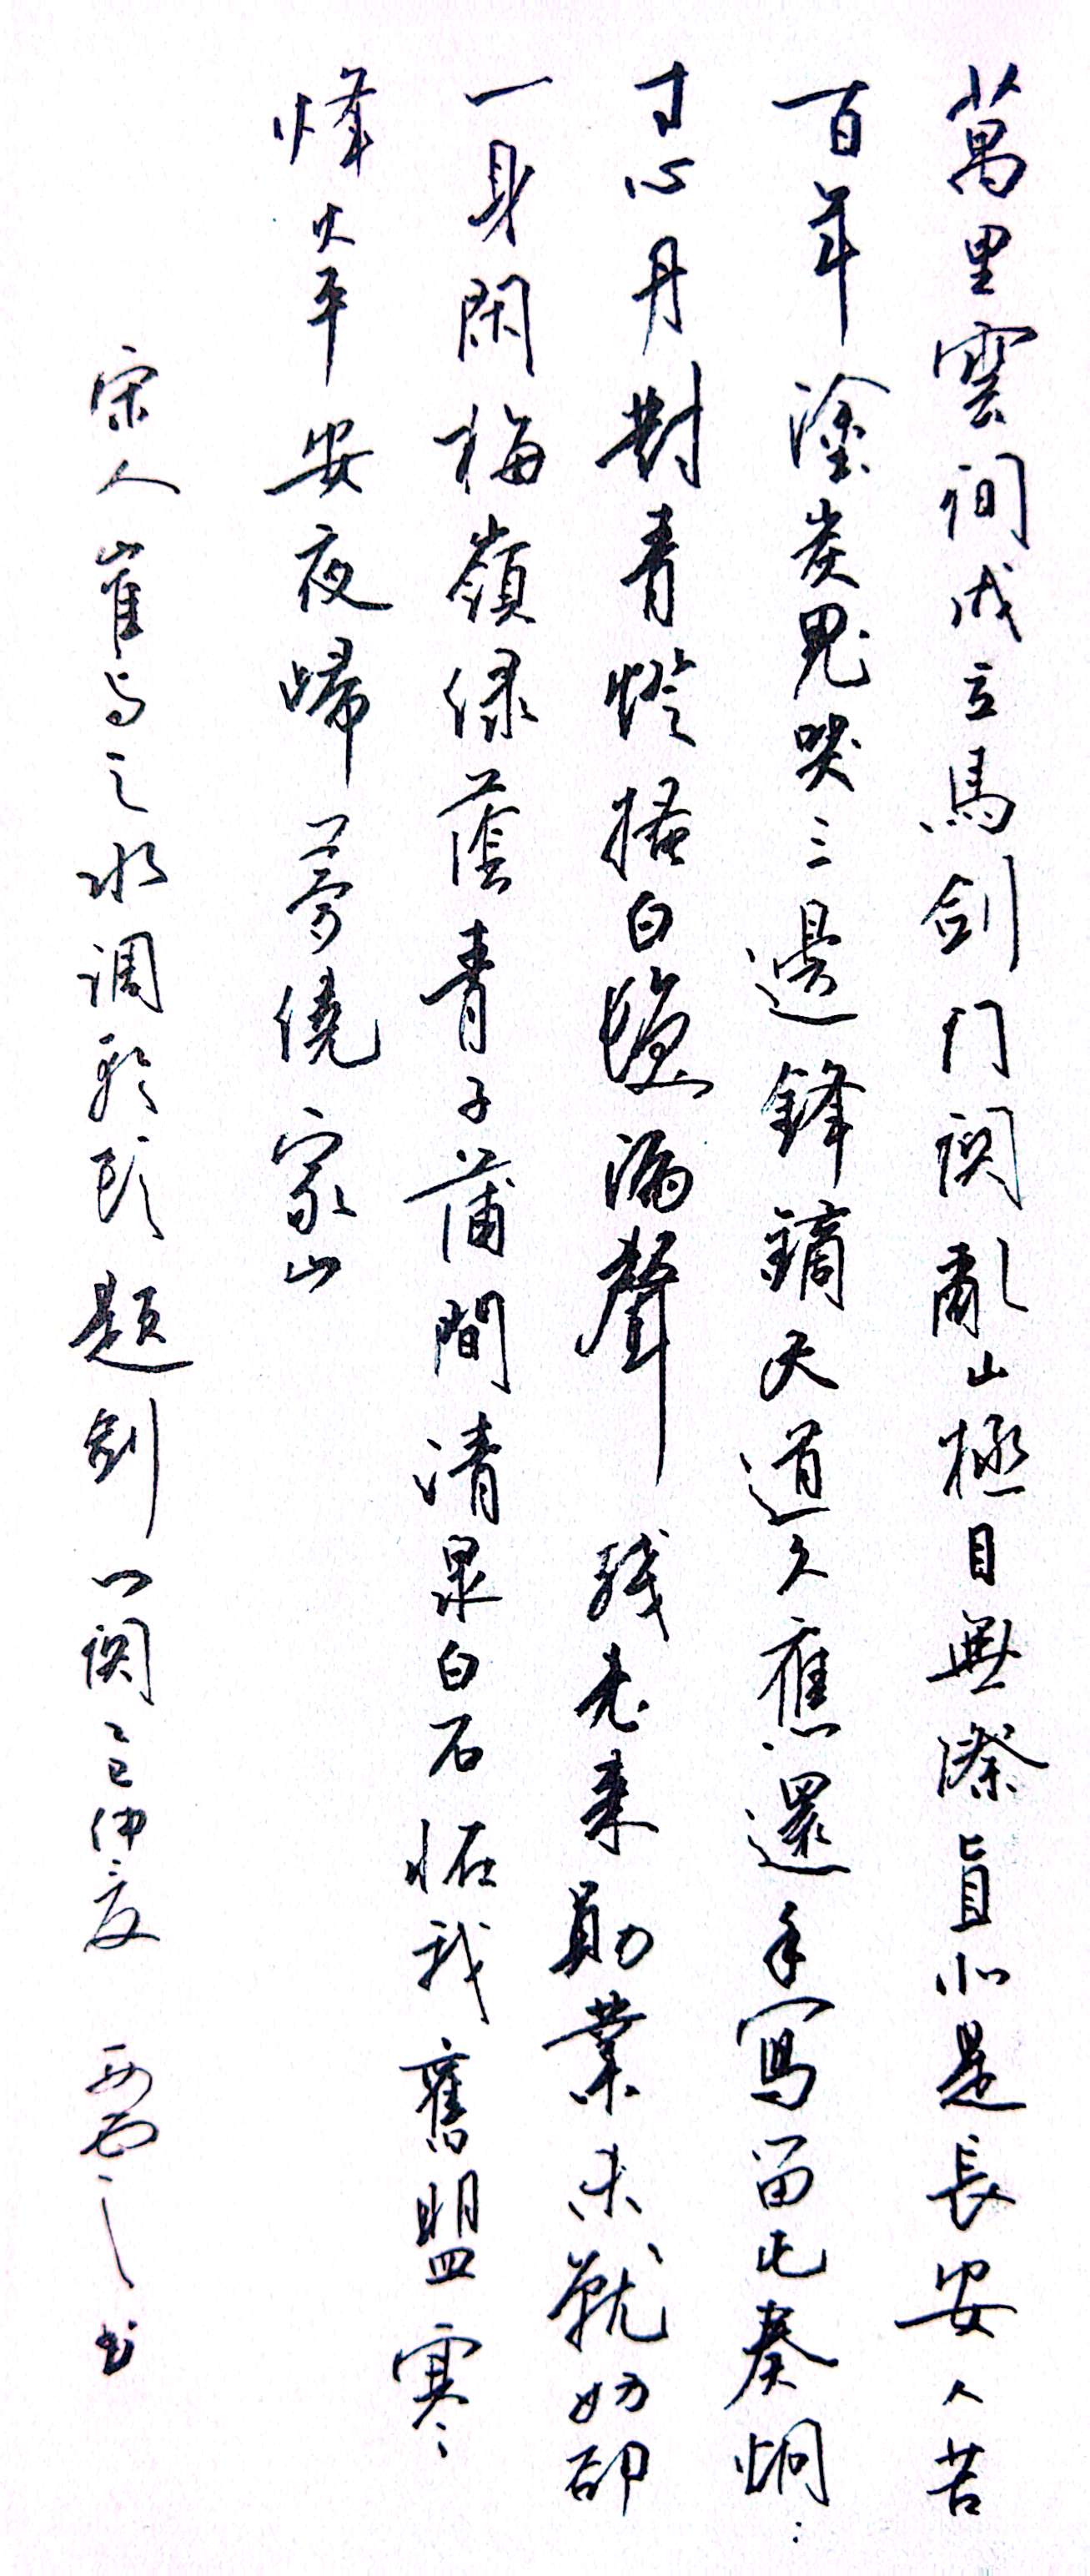 萬里雲间戍立馬剑门関亂山極目無際真北是長安人苦
百年塗炭鬼哭三邊鋒鏑天道久應還手寫留屯奏炯:
寸心丹對青燈搔白髮漏聲殘老来勛業未就妨卻
一身閑梅嶺緑蔭青子蒲間清泉白石怪我舊盟寒
烽火平安夜歸夢繞家山
宋人崔与之水调歌头题剑一阕 仲夏 之书